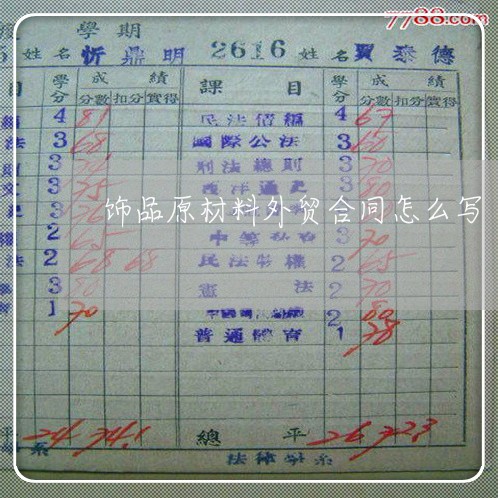 7788.com
學期
姓名 忻鼎明 2616 姓名 賈泰德
目 學分 成績 課目 學分 成績
分數 扣分 實得 分數 扣分 實得
4 81 民法債編 4 67
法 3 68 國際公法 3 60
3 刑法總則 3 70
3 75 西洋通史 3 80
饰品原材料外贸合同怎么写
2 65 3 70
法 2 68 68 民法物權 2 65
3 80 憲法 2 70
1 70 2 80
普通體育 1 78
平 24 74.1 總平 26 72.3
系 法律學系